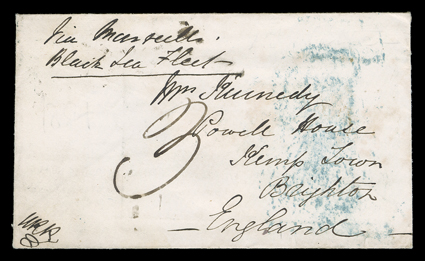 Via Marseille.
Black Sea Fleet
Kennedy
3
Powell House
Kemp Town
Brighton
England